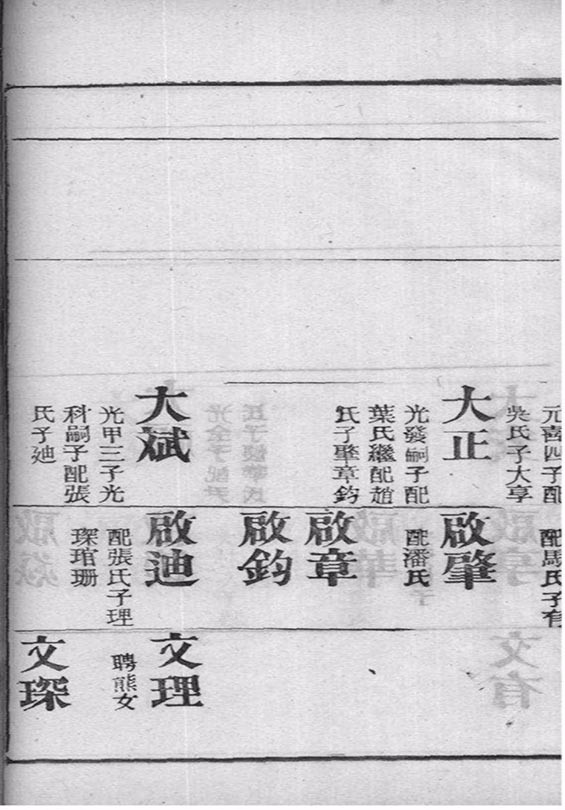 元喜四子配
吳氏子大享
大正
光發嗣子配
葉氏繼配趙
氏子肇章鈞
大斌
光甲三子光
科嗣子配張
氏子廸
配馬氏子有
啟肇
配潘氏
啟章
啟鈞
啟廸
配張氏子理
琛琯珊
文理
聘熊女
文琛